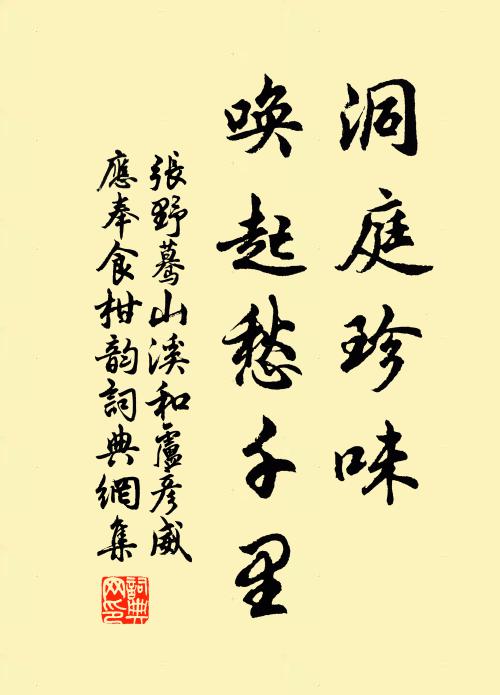 洞庭珍味
喚起愁千里
張野驀山溪和盧彥威
應奉食柑韵詞典網集
詞典網印